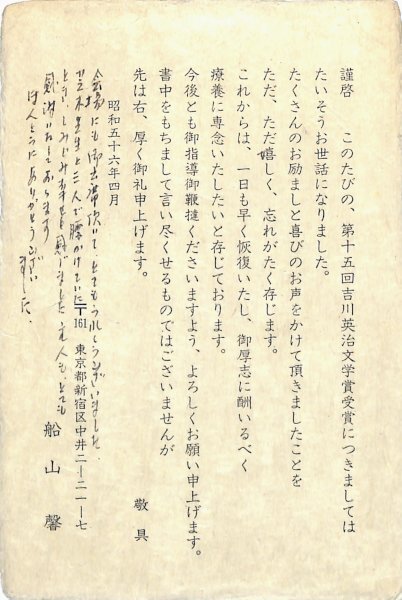 謹啓　このたびの、第十五回吉川英治文学賞受賞につきましては
たいそうお世話になりました。
たくさんのお励ましと喜びのお声をかけて頂きましたことを
ただ、ただ嬉しく、忘れがたく存じます。
これからは、一日も早く恢復いたし、御厚志に酬いるべく
療養に専念いたしたいと存じております。
今後とも御指導御鞭撻くださいますよう、よろしくお願い申上げます。
書中をもちまして言い尽くせるものではございませんが
先は右、厚く御礼申上げます。
敬具
昭和五十六年四月
〒161　東京都新宿区中井二ー二一ー七
船山馨
会場にも御出席頂いてとてもうれしうございました、
先生と三人で腰かけていた
とき、しみじみ幸せを
感謝いたしております
ほんとうにありがとうござい
ました、